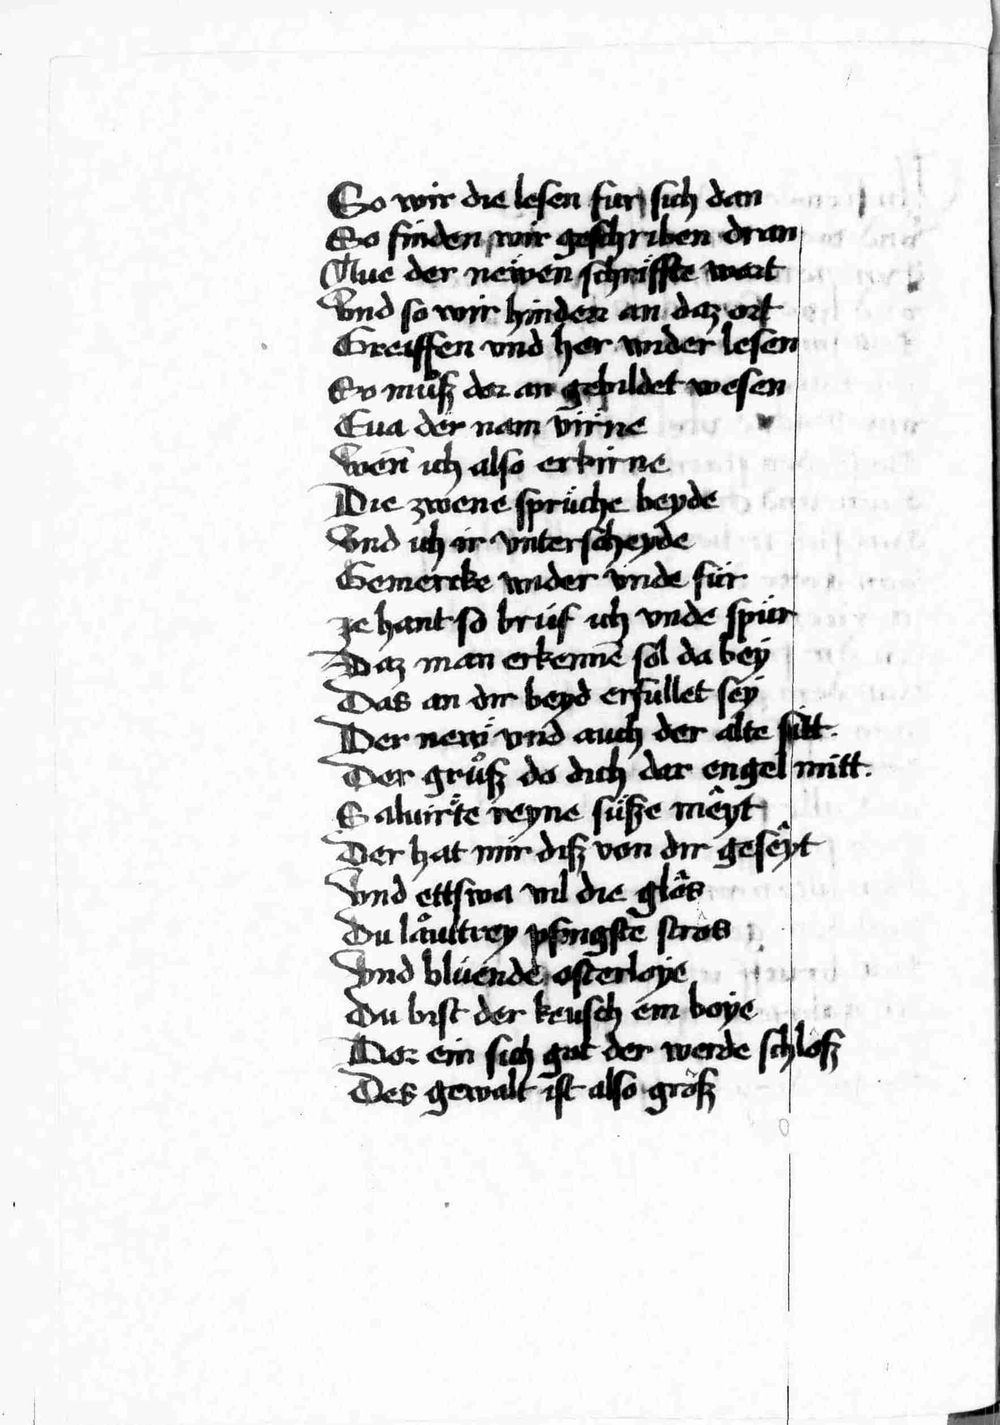 So wir die lesen fur sich dan
So finden wir geschriben dran
Aue der newen schriffte wort
Vnd so wir hinden an daz ort
Greiffen vnd her wider lesen
So můsz dor an gebildet wesen
Eua der nam virne
Wen̄ ich also erkirne
Die zwene sprüche beyde
Vnd ich ir vnterscheyde
Gemercke wider vnde für
ze hant so brüf ich vnde spür
Daz man erkenne̅ sol da bey
Das an dir beyd erfullet sey
Der new vnd auch der alte sitt.
Der grůsz do dich dar engel mitt.
Salvirte reyne süsze mêyt
Der hat mir disz von dir gesêyt
Vnd ettswa vil die glôs
Du låutrey pfingste̅ ros
Vnd blüende osterloye
Du bist der keusch ein boye
Dor ein sich got der werde schlosz
Des gewalt ist also grosz